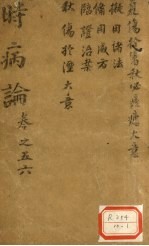 夏傷於暑秋必痎瘧大意
擬用諸法
備用成方
臨證治案
秋傷於溼大意
時病論
卷之五六